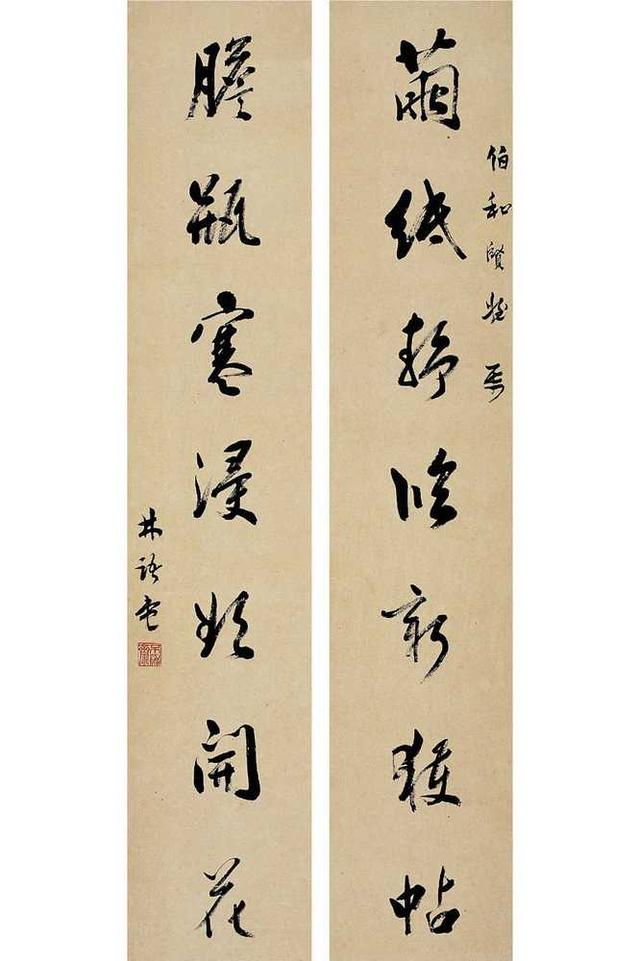 繭紙靜臨新獲帖
伯和賢
膽瓶寒浸欲開花
林語堂